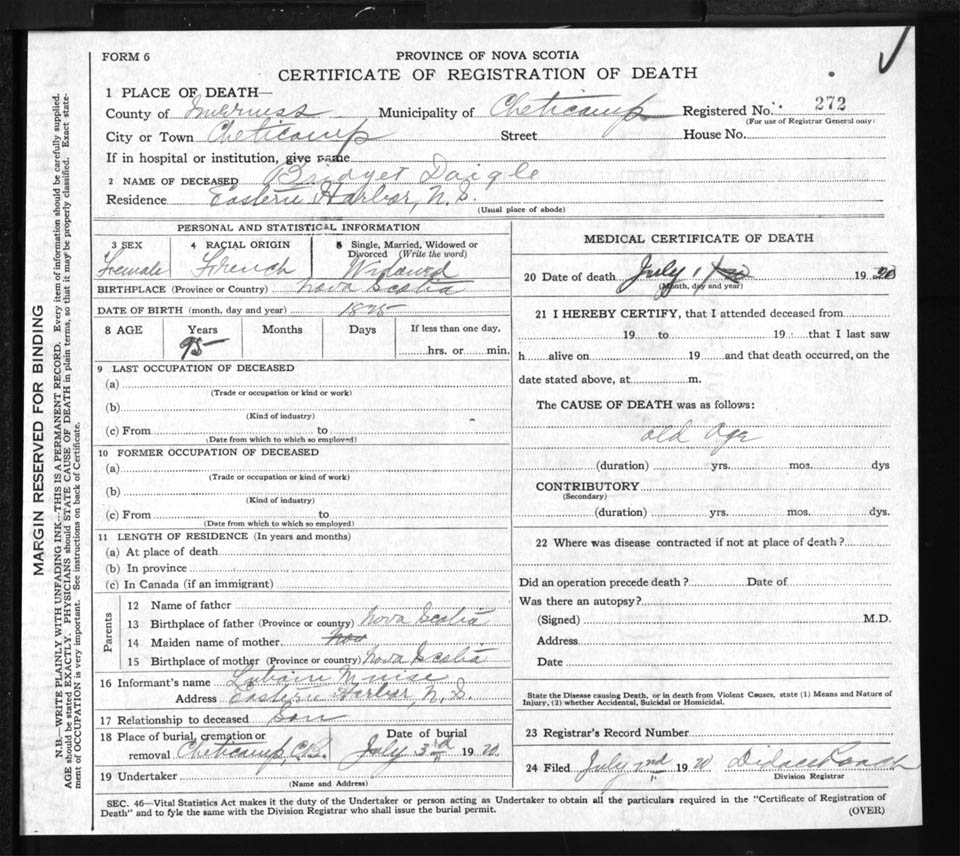 FORM 6
PROVINCE OF NOVA SCOTIA
CERTIFICATE OF REGISTRATION OF DEATH
1 PLACE OF DEATH—
County of Inverness Municipality of Cheticamp Registered No. 272
(For use of Registrar General only)
City or Town Cheticamp Street House No.
If in hospital or institution, give name
2 NAME OF DECEASED Bridget Daigle
Residence Eastern Harbor, N.S.
(Usual place of abode)
PERSONAL AND STATISTICAL INFORMATION
3 SEX 4 RACIAL ORIGIN 5 Single, Married, Widowed or Divorced (Write the word)
Female French Widowed
BIRTHPLACE (Province or Country) Nova Scotia
DATE OF BIRTH (month, day and year) 1825
8 AGE Years Months Days If less than one day,
95 hrs. or min.
9 LAST OCCUPATION OF DECEASED
(a)
(Trade or occupation or kind or work)
(b)
(Kind of industry)
(c) From to
(Date from which to which so employed)
10 FORMER OCCUPATION OF DECEASED
(a)
(Trade or occupation or kind of work)
(b)
(Kind of industry)
(c) From to
(Date from which to which so employed)
11 LENGTH OF RESIDENCE (In years and months)
(a) At place of death
(b) In province
(c) In Canada (if an immigrant)
Parents
12 Name of father
13 Birthplace of father (Province or country) Nova Scotia
14 Maiden name of mother
15 Birthplace of mother (Province or country) Nova Scotia
16 Informant's name Muise
Address Eastern Harbor, N.S.
17 Relationship to deceased Son
18 Place of burial, cremation or Date of burial
removal Cheticamp, C.B. July 3rd 1920
19 Undertaker
(Name and Address)
MEDICAL CERTIFICATE OF DEATH
20 Date of death July 1 1920
(Month, day and year)
21 I HEREBY CERTIFY, that I attended deceased from
19 to 19 that I last saw
h alive on 19 and that death occurred, on the
date stated above, at m.
The CAUSE OF DEATH was as follows:
old age
(duration) yrs. mos. dys
CONTRIBUTORY
(Secondary)
(duration) yrs. mos. dys.
22 Where was disease contracted if not at place of death?
Did an operation precede death? Date of
Was there an autopsy?
(Signed) M.D.
Address
Date
State the Disease causing Death, or in death from Violent Causes, state (1) Means and Nature of
Injury, (2) whether Accidental, Suicidal or Homicidal.
23 Registrar's Record Number
24 Filed July 2nd 1920
Division Registrar
SEC. 46—Vital Statistics Act makes it the duty of the Undertaker or person acting as Undertaker to obtain all the particulars required in the "Certificate of Registration of
Death" and to fyle the same with the Division Registrar who shall issue the burial permit. (OVER)
MARGIN RESERVED FOR BINDING
N.B.—WRITE PLAINLY WITH UNFADING INK—THIS IS A PERMANENT RECORD. Every item of information should be carefully supplied.
AGE should be stated EXACTLY. PHYSICIANS should STATE CAUSE OF DEATH in plain terms, so that it may be properly classified. Exact state-
ment of OCCUPATION is very important. See instructions on back of Certificate.